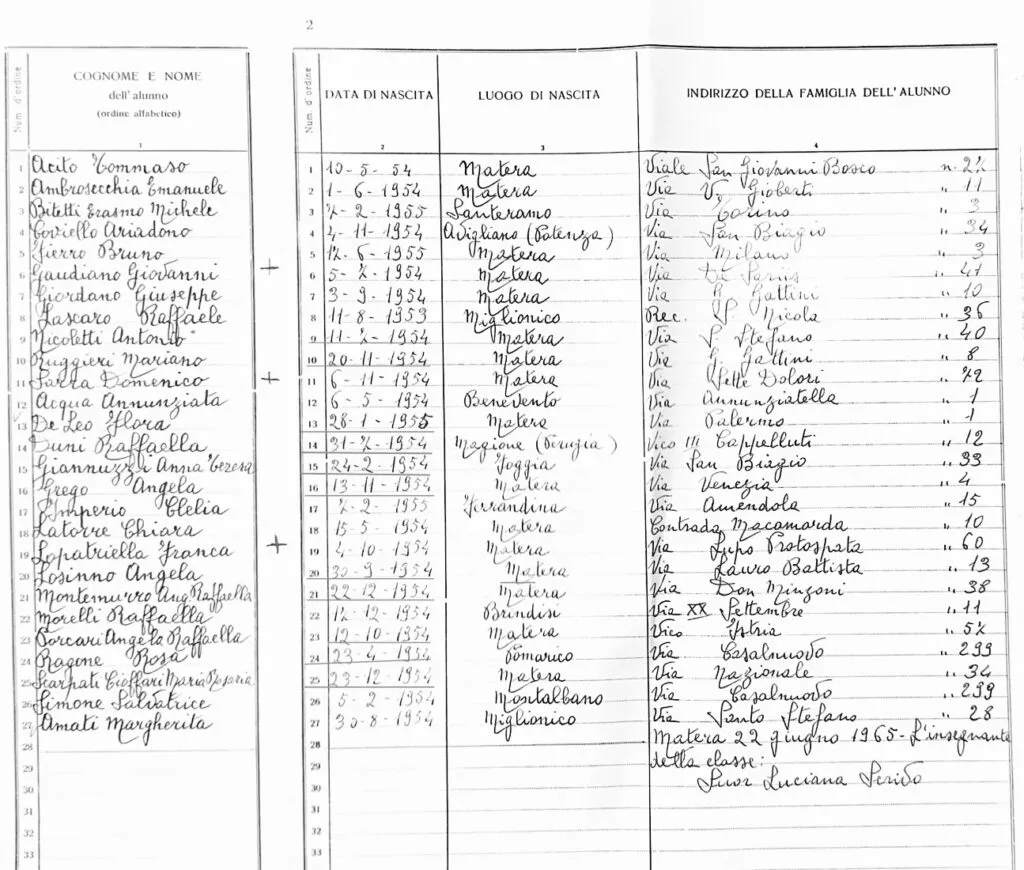 2
Num. d'ordine
COGNOME E NOME
dell'alunno
(ordine alfabetico)
1
Num. d'ordine
DATA DI NASCITA
2
LUOGO DI NASCITA
3
INDIRIZZO DELLA FAMIGLIA DELL'ALUNNO
4
1 Acito Tommaso 1 12-5-54 Matera Viale San Giovanni Bosco n. 27
2 Ambrosecchia Emanuele 2 1-6-1954 Matera Via V. Gioberti " 11
3 Bitetti Erasmo Michele 3 7-2-1955 Santeramo Via Torino " 3
4 Coviello Ariadono 4 4-11-1954 Avigliano (Potenza) Via San Biagio " 34
5 Fierro Bruno 5 17-6-1955 Matera Via Milano " 3
6 Gaudiano Giovanni + 6 5-7-1954 Matera Via De " 41
7 Giordano Giuseppe 7 3-9-1954 Matera Via G. Gattini " 10
8 Lascaro Raffaele 8 11-8-1953 Miglionico Rec. S. Nicola " 36
9 Nicoletti Antonio 9 11-7-1954 Matera Via S. Stefano " 40
10 Ruggieri Mariano 10 20-11-1954 Matera Via G. Gattini " 8
11 Sarra Domenico + 11 6-11-1954 Matera Via Sette Dolori " 72
12 Acqua Annunziata 12 6-5-1954 Benevento Via Annunziatella " 1
13 De Leo Flora 13 28-1-1955 Matera Via Palermo " 1
14 Duni Raffaella 14 31-7-1954 Magione (Perugia) Vico III Cappelluti " 12
15 Giannuzzi Anna Teresa 15 24-2-1954 Foggia Via San Biagio " 33
16 Grego Angela 16 13-11-1954 Matera Via Venezia " 4
17 Imperio Clelia 17 7-2-1955 Ferrandina Via Amendola " 15
18 Latorre Chiara 18 15-5-1954 Matera Contrada Macamarda " 10
19 Lopatriella Franca + 19 4-10-1954 Matera Via Lupo Protospata " 60
20 Losinno Angela 20 30-9-1954 Matera Via Lauro Battista " 13
21 Montemurro Ang. Raffaella 21 22-12-1954 Matera Via Don Minzoni " 38
22 Morelli Raffaella 22 17-12-1954 Brindisi Via XX Settembre " 11
23 Porcari Angela Raffaella 23 12-10-1954 Matera Vico Istria " 57
24 Ragone Rosa 24 23-4-1954 Pomarico Via Casalnuovo " 299
25 Scarpati Cioffari Maria Rosaria 25 23-12-1954 Matera Via Nazionale " 34
26 Simone Salvatrice 26 5-2-1954 Montalbano Via Casalnuovo " 299
27 Amati Margherita 27 30-8-1954 Miglionico Via Santo Stefano " 28
28 28 Matera 22 giugno 1965- L'insegnante
29 29 della classe:
30 30 Suor Luciana Scrido
31 31
32 32
33 33